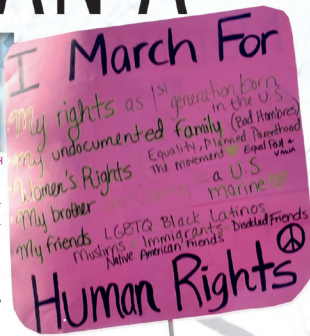 I March For
My rights as 1st generation born
in the U.S
My undocumented family (Bad Hombres)
Women's Rights Equality, Planned Parenthood
The movement Equal Pay +
My brother a U.S
marine
My friends LGBTQ Black Latinos
Muslims Immigrants Disabled Friends
Native American Friends
Human Rights